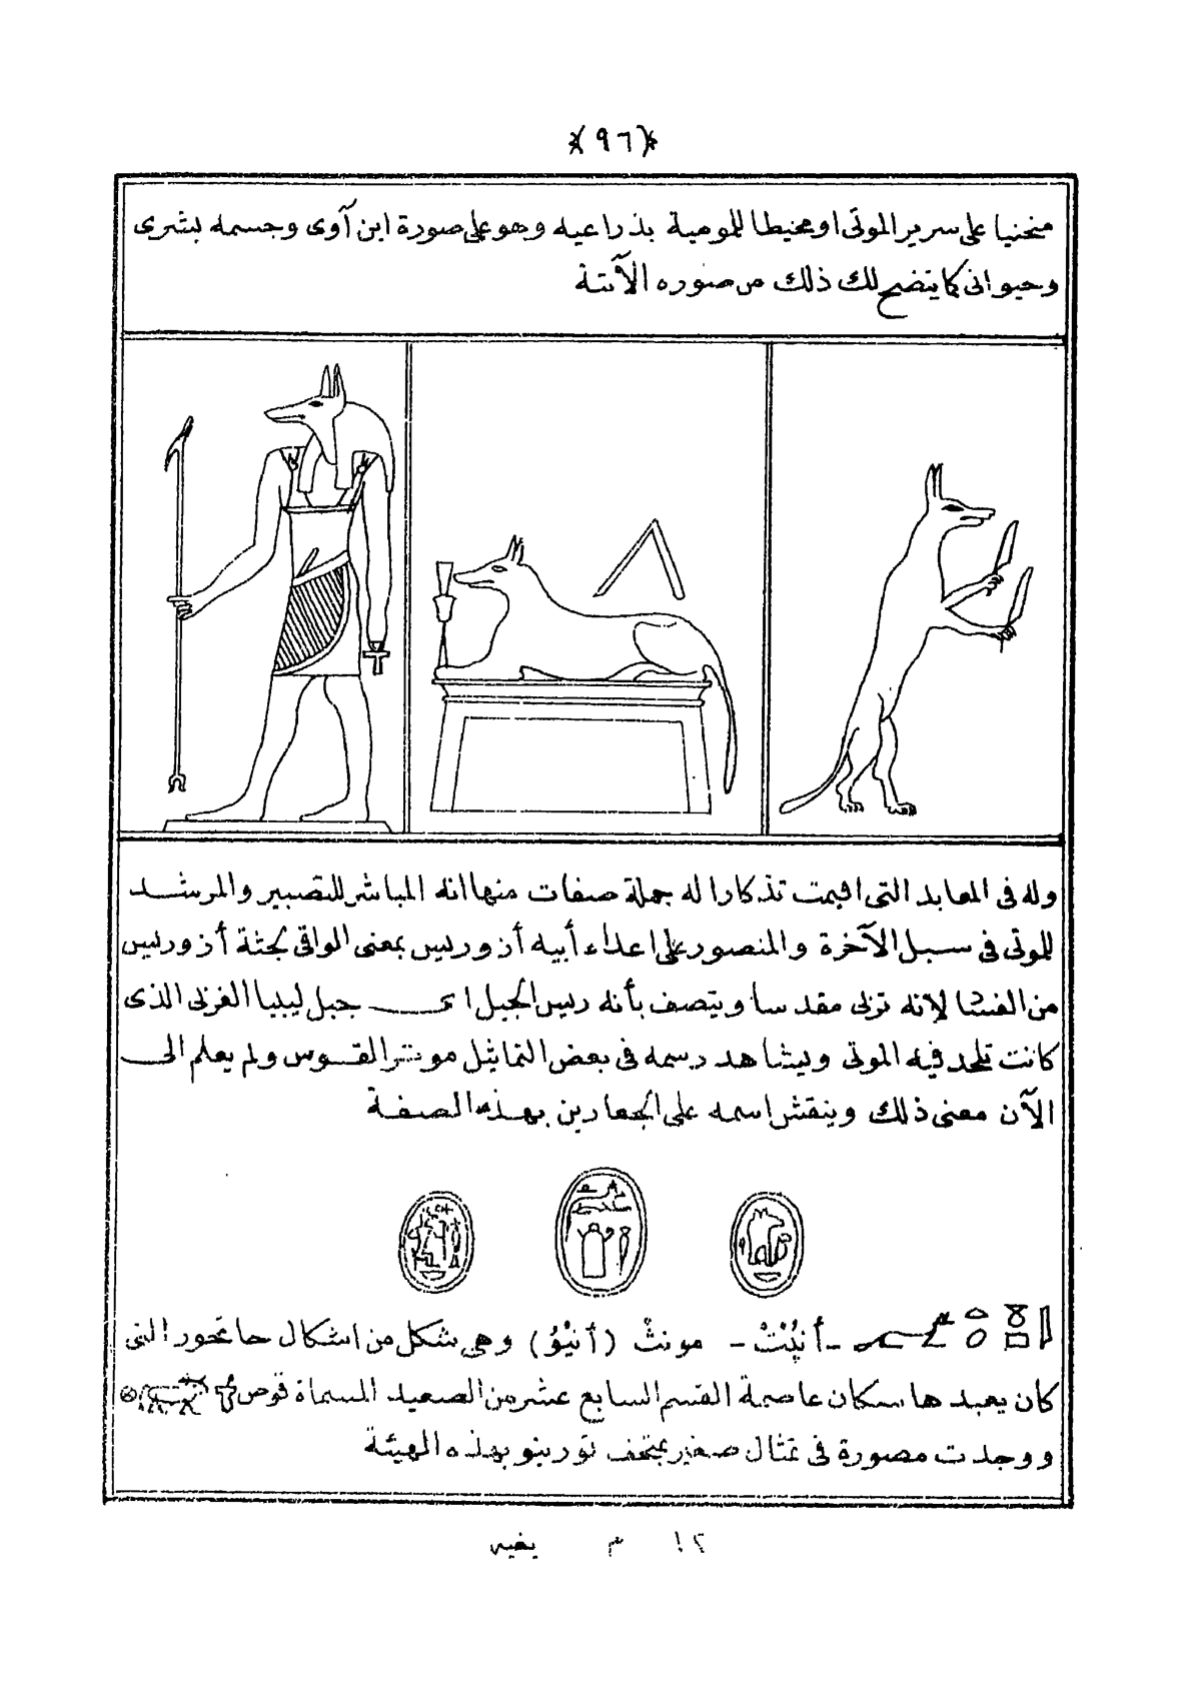 ﴿٩٦﴾
منحنيا على سرير الموتى او محيطا للمومية بذراعيه وهو على صورة ابن آوى وجسمه بشرى
وحيوانى كما يتضح لك ذلك من صوره الآتية
وله فى المعابد التى اقيمت تذكارا له جملة صفات منها انه المباشر للتصبير والمرشد
للموتى فى سبل الآخرة والمنصور على اعداء أبيه أزوريس بمعنى الواقى لجثة أزوريس
من الفشا لانه تربى مقدسا ويتصف بأنه رئيس الجبل اى جبل ليبيا الغربى الذى
كانت تلحد فيه الموتى ويشاهد رسمه فى بعض التماثيل موتر القوس ولم يعلم الى
الآن معنى ذلك وينقش اسمه على الجعارين بهذه الصفة
- أنپُتْ - مونث (أنپُو) وهى شكل من اشكال حاتحور التى
كان يعبدها سكان عاصمة القسم السابع عشر من الصعيد المسماة قوص
ووجدت مصورة فى تمثال صغير بمتحف تورينو بهذه الهيئة
١٢ م يغيه